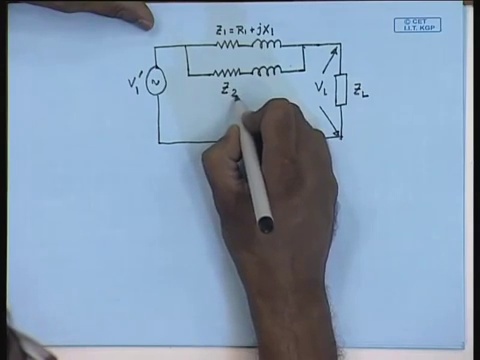 © CET
I.I.T. KGP
Z1 = R1 + jX1
V1'
~
Z2
VL
ZL